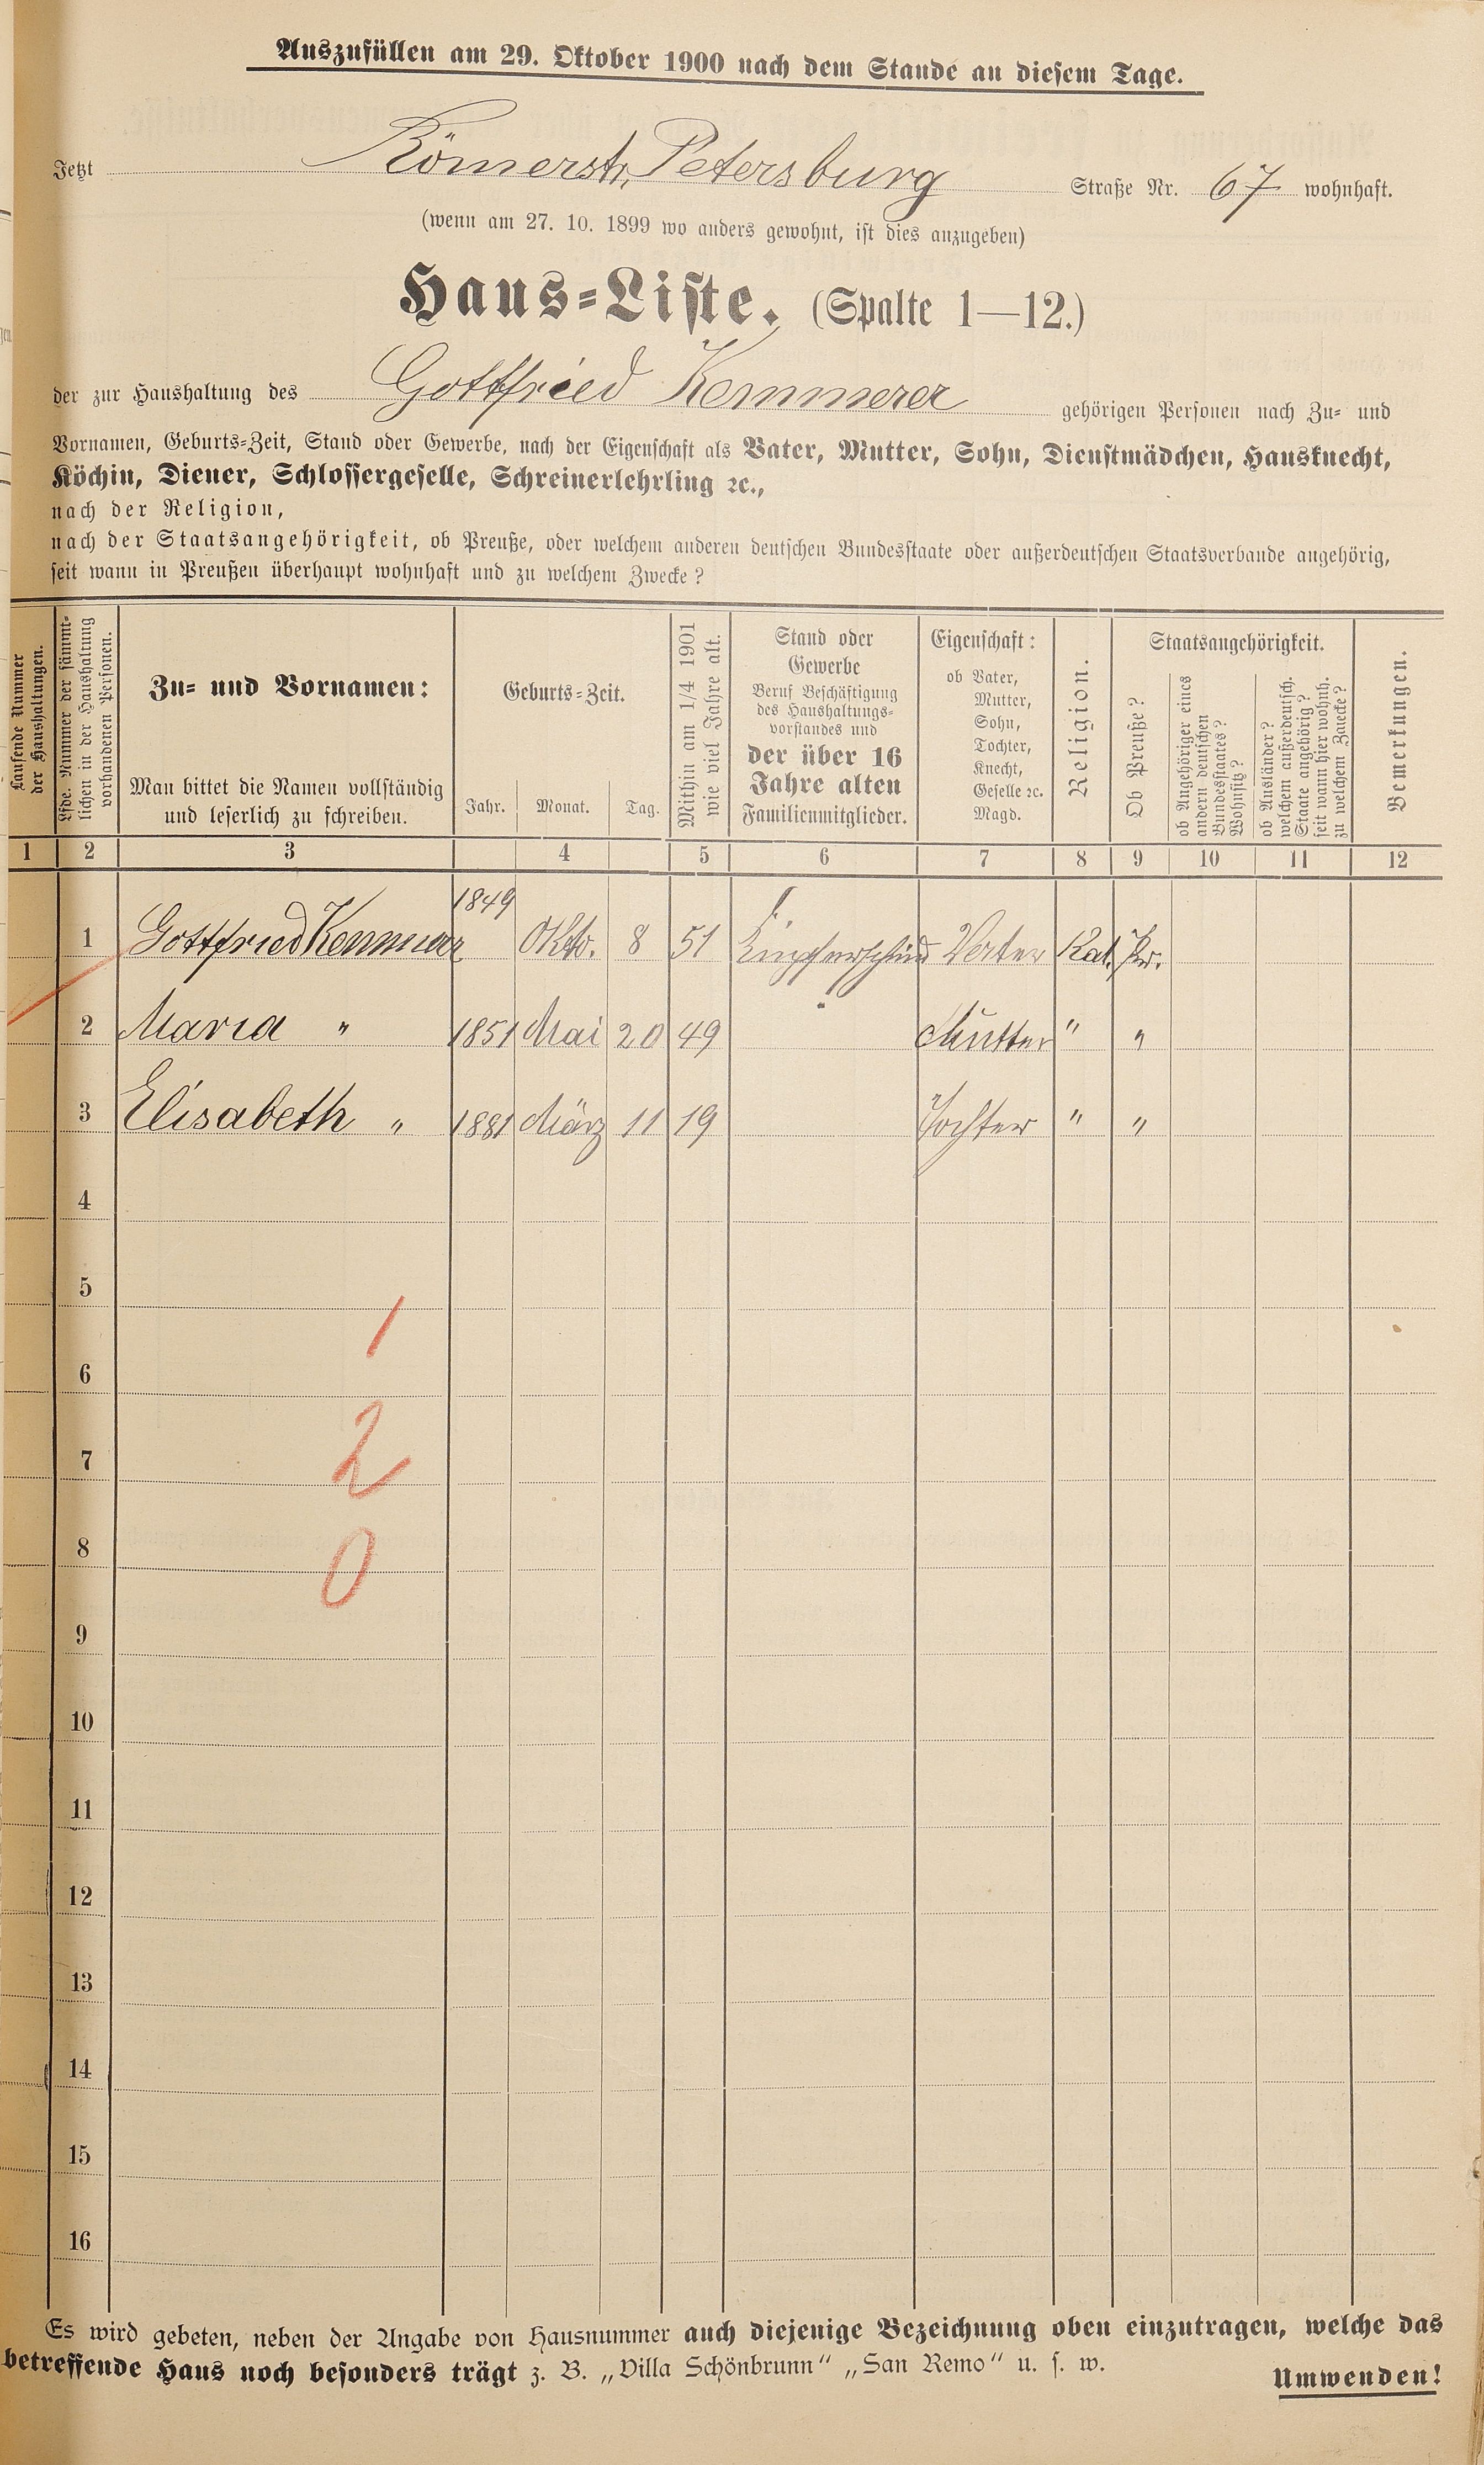 Auszufüllen am 29. Oktober 1900 nach dem Stande an diesem Tage.
Jetzt Römerstr. Petersburg Straße Nr. 67 wohnhaft.
(wenn am 27. 10. 1899 wo anders gewohnt, ist dies anzugeben)
Haus-Liste. (Spalte 1—12.)
der zur Haushaltung des Gottfried Kemmerer gehörigen Personen nach Zu- und
Vornamen, Geburts-Zeit, Stand oder Gewerbe, nach der Eigenschaft als Vater, Mutter, Sohn, Dienstmädchen, Hausknecht,
Köchin, Diener, Schlossergeselle, Schreinerlehrling ꝛc.,
nach der Religion,
nach der Staatsangehörigkeit, ob Preuße, oder welchem anderen deutschen Bundesstaate oder außerdeutschen Staatsverbande angehörig,
seit wann in Preußen überhaupt wohnhaft und zu welchem Zwecke?
Laufende Nummer
der Haushaltungen.
Lfde. Nummer der sämmt-
lichen in der Haushaltung
vorhandenen Personen.
Zu- und Vornamen:
Man bittet die Namen vollständig
und leserlich zu schreiben.
Geburts-Zeit.
Jahr. Monat. Tag.
Mithin am 1/4 1901
wie viel Jahre alt.
Stand oder
Gewerbe
Beruf Beschäftigung
des Haushaltungs-
vorstandes und
der über 16
Jahre alten
Familienmitglieder.
Eigenschaft:
ob Vater,
Mutter,
Sohn,
Tochter,
Knecht,
Geselle ꝛc.
Magd.
Religion.
Staatsangehörigkeit.
Ob Preuße?
ob Angehöriger eines
andern deutschen
Bundesstaates?
Wohnsitz?
ob Ausländer?
welchem außerdeutsch.
Staate angehörig?
seit wann hier wohnh.
zu welchem Zwecke?
Bemerkungen.
1 2 3 4 5 6 7 8 9 10 11 12
1 Gottfried Kemmerer 1849 Okto. 8 51 Vater Kat. Pr.
2 Maria " 1851 Mai 20 49 Mutter " "
3 Elisabeth " 1881 März 11 19 Tochter " "
4
5
1
6
7
2
8
0
9
10
11
12
13
14
15
16
Es wird gebeten, neben der Angabe von Hausnummer auch diejenige Bezeichnung oben einzutragen, welche das
betreffende Haus noch besonders trägt z. B. „Villa Schönbrunn“ „San Remo“ u. s. w.
Umwenden!